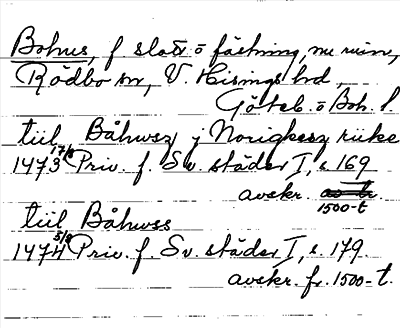 Bohus, f. slott o fästning, nu ruin,
Rödbo sn, V. Hisings hd,
Göteb. o Boh. l.
tiil Båhwsz j Norigkesz riike
1473 17/8 Priv. f. Sv. städer I, s. 169
avskr.
1500-t
tiil Båhwss
1474 5/8 Priv. f. Sv. städer I, s. 179
avskr. fr. 1500-t.